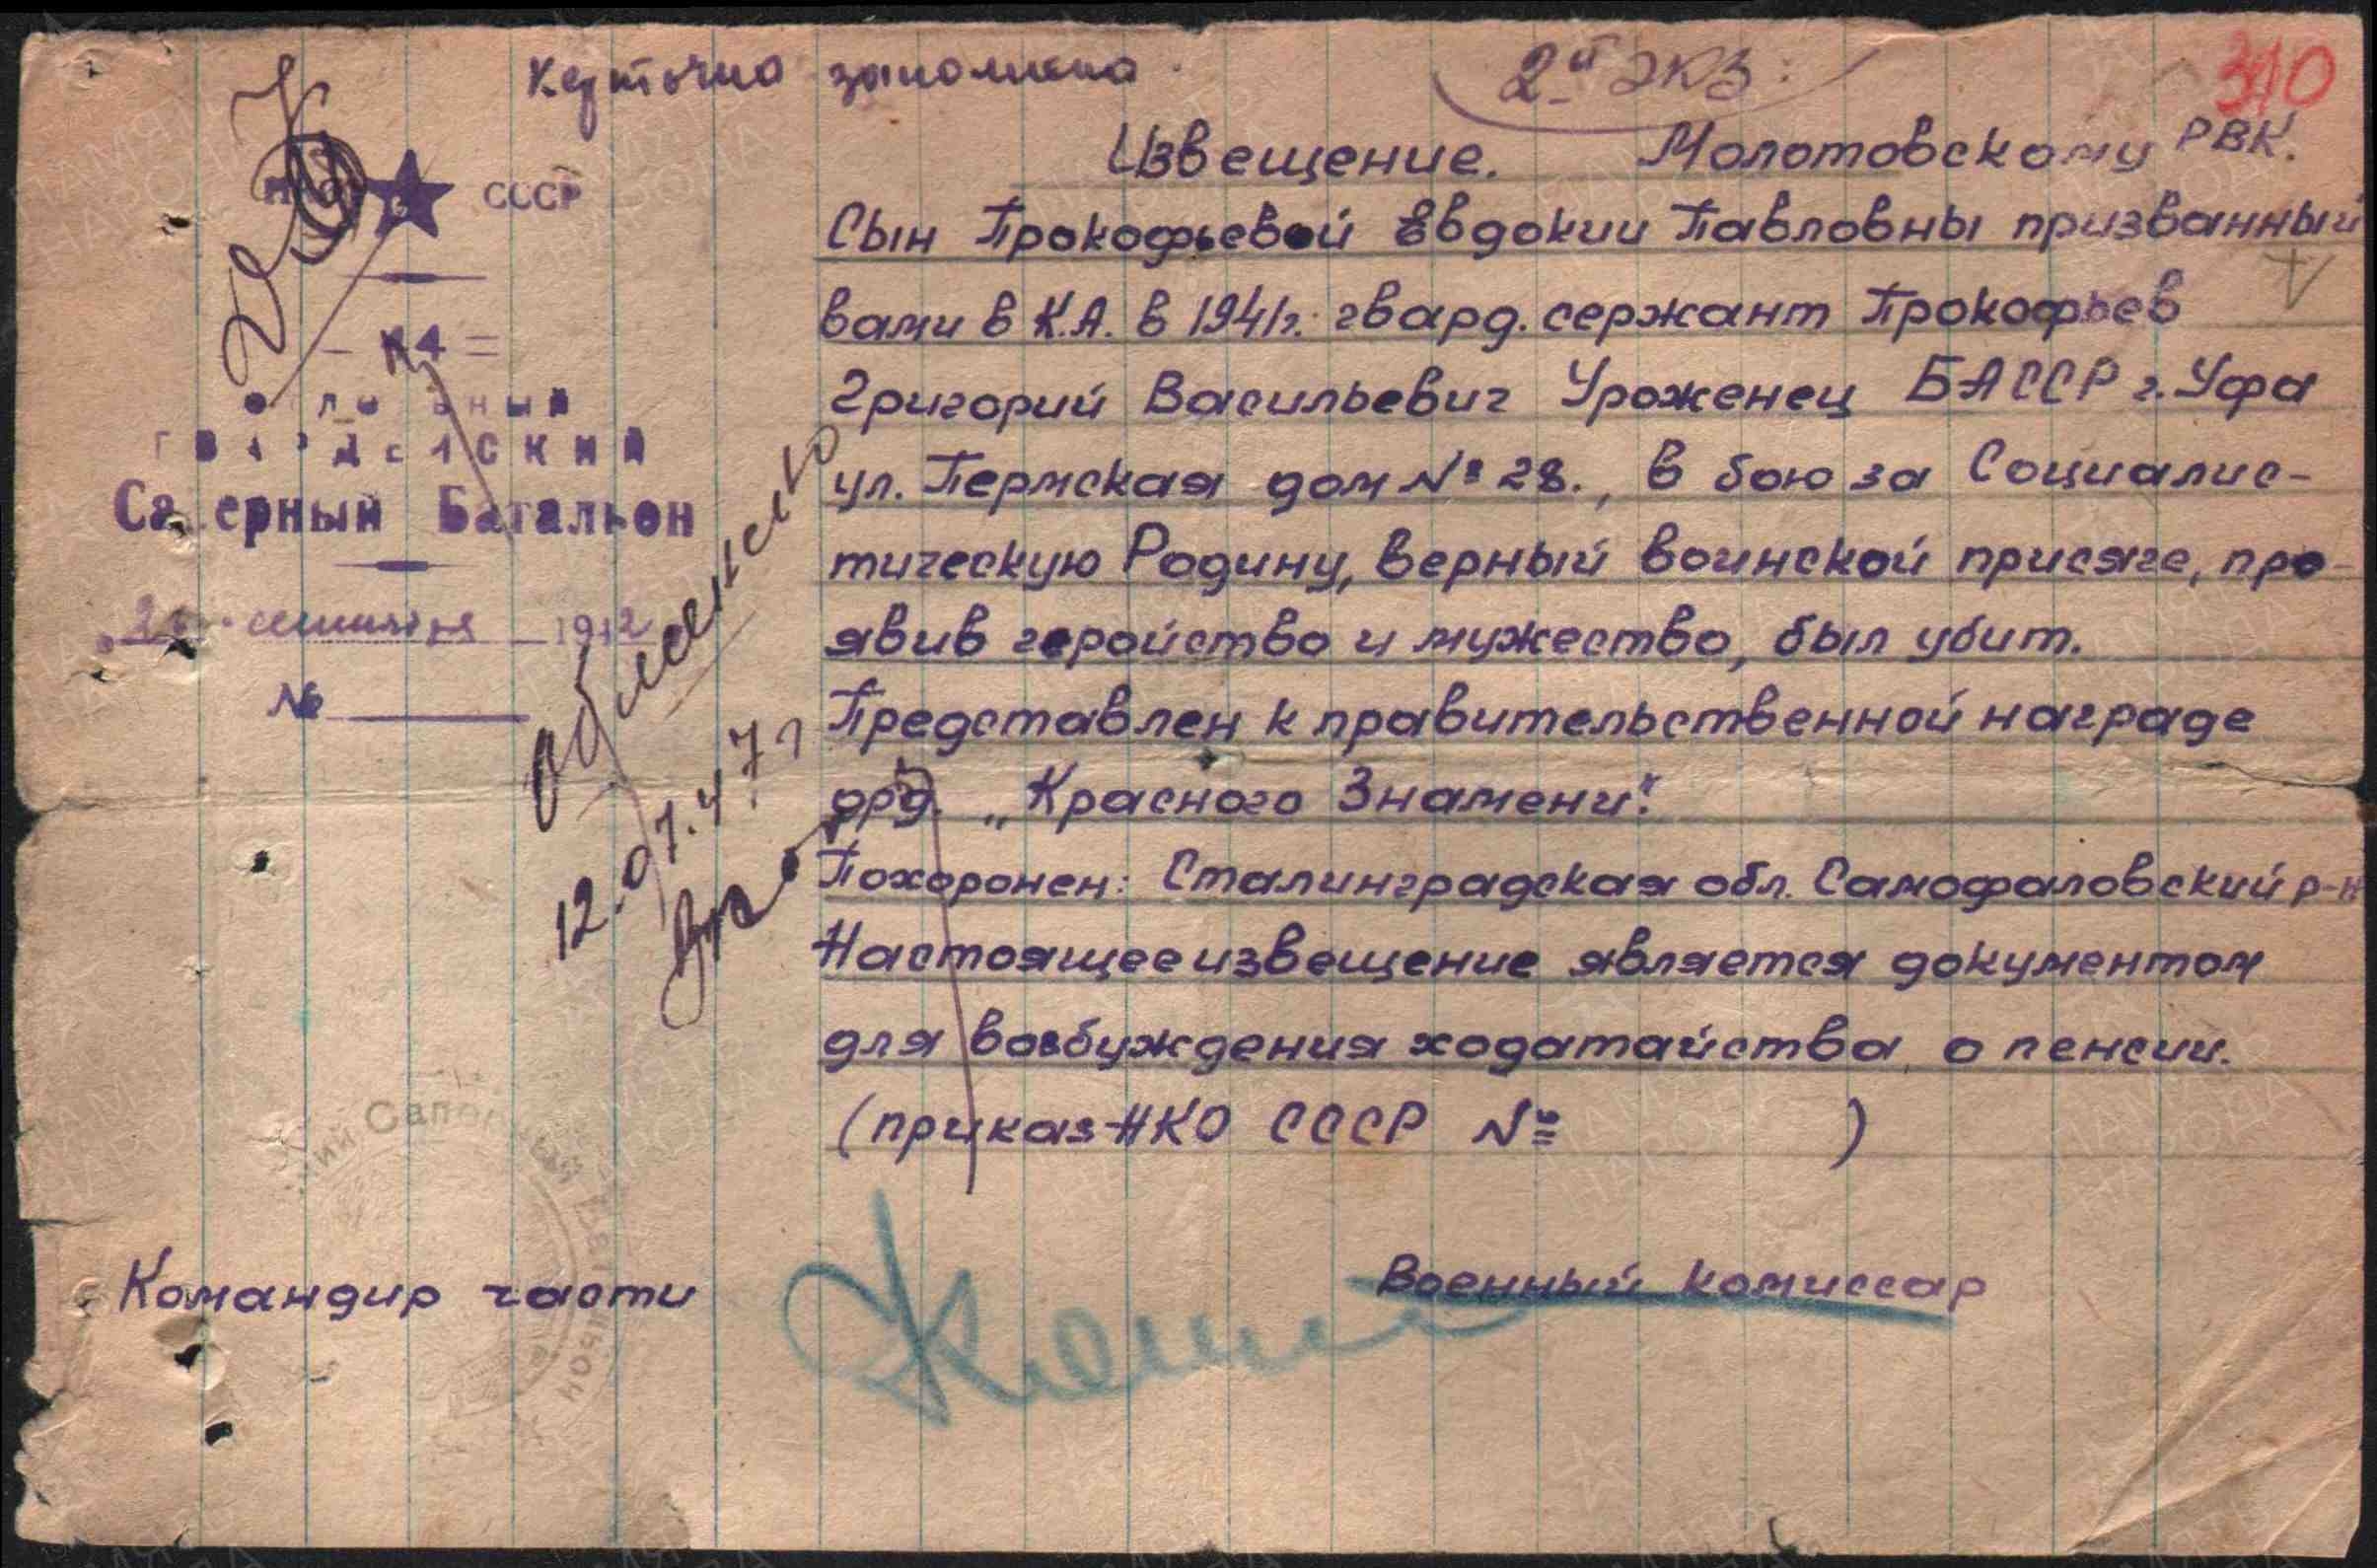 Карточка заполнена.
2й экз.
310
Извещение. Молотовскому РВК.
Сын Прокофьевой Евдокии Павловны призванный
вами в К.А. в 1941г. гвард. сержант Прокофьев
Григорий Васильевич Уроженец БАССР г. Уфа
ул. Пермская дом № 28., в бою за Социалис-
тическую Родину, верный воинской присяге, про-
явив геройство и мужество, был убит.
Представлен к правительственной награде
орд. „Красного Знамени".
Похоронен: Сталинградская обл. Самофаловский р-н
Настоящее извещение является документом
для возбуждения ходатайства о пенсии.
(приказ НКО СССР № )
СССР
Гвардейский
Саперный Батальон
сентября 1942
№
12.07.47г
Командир части
Военный комиссар